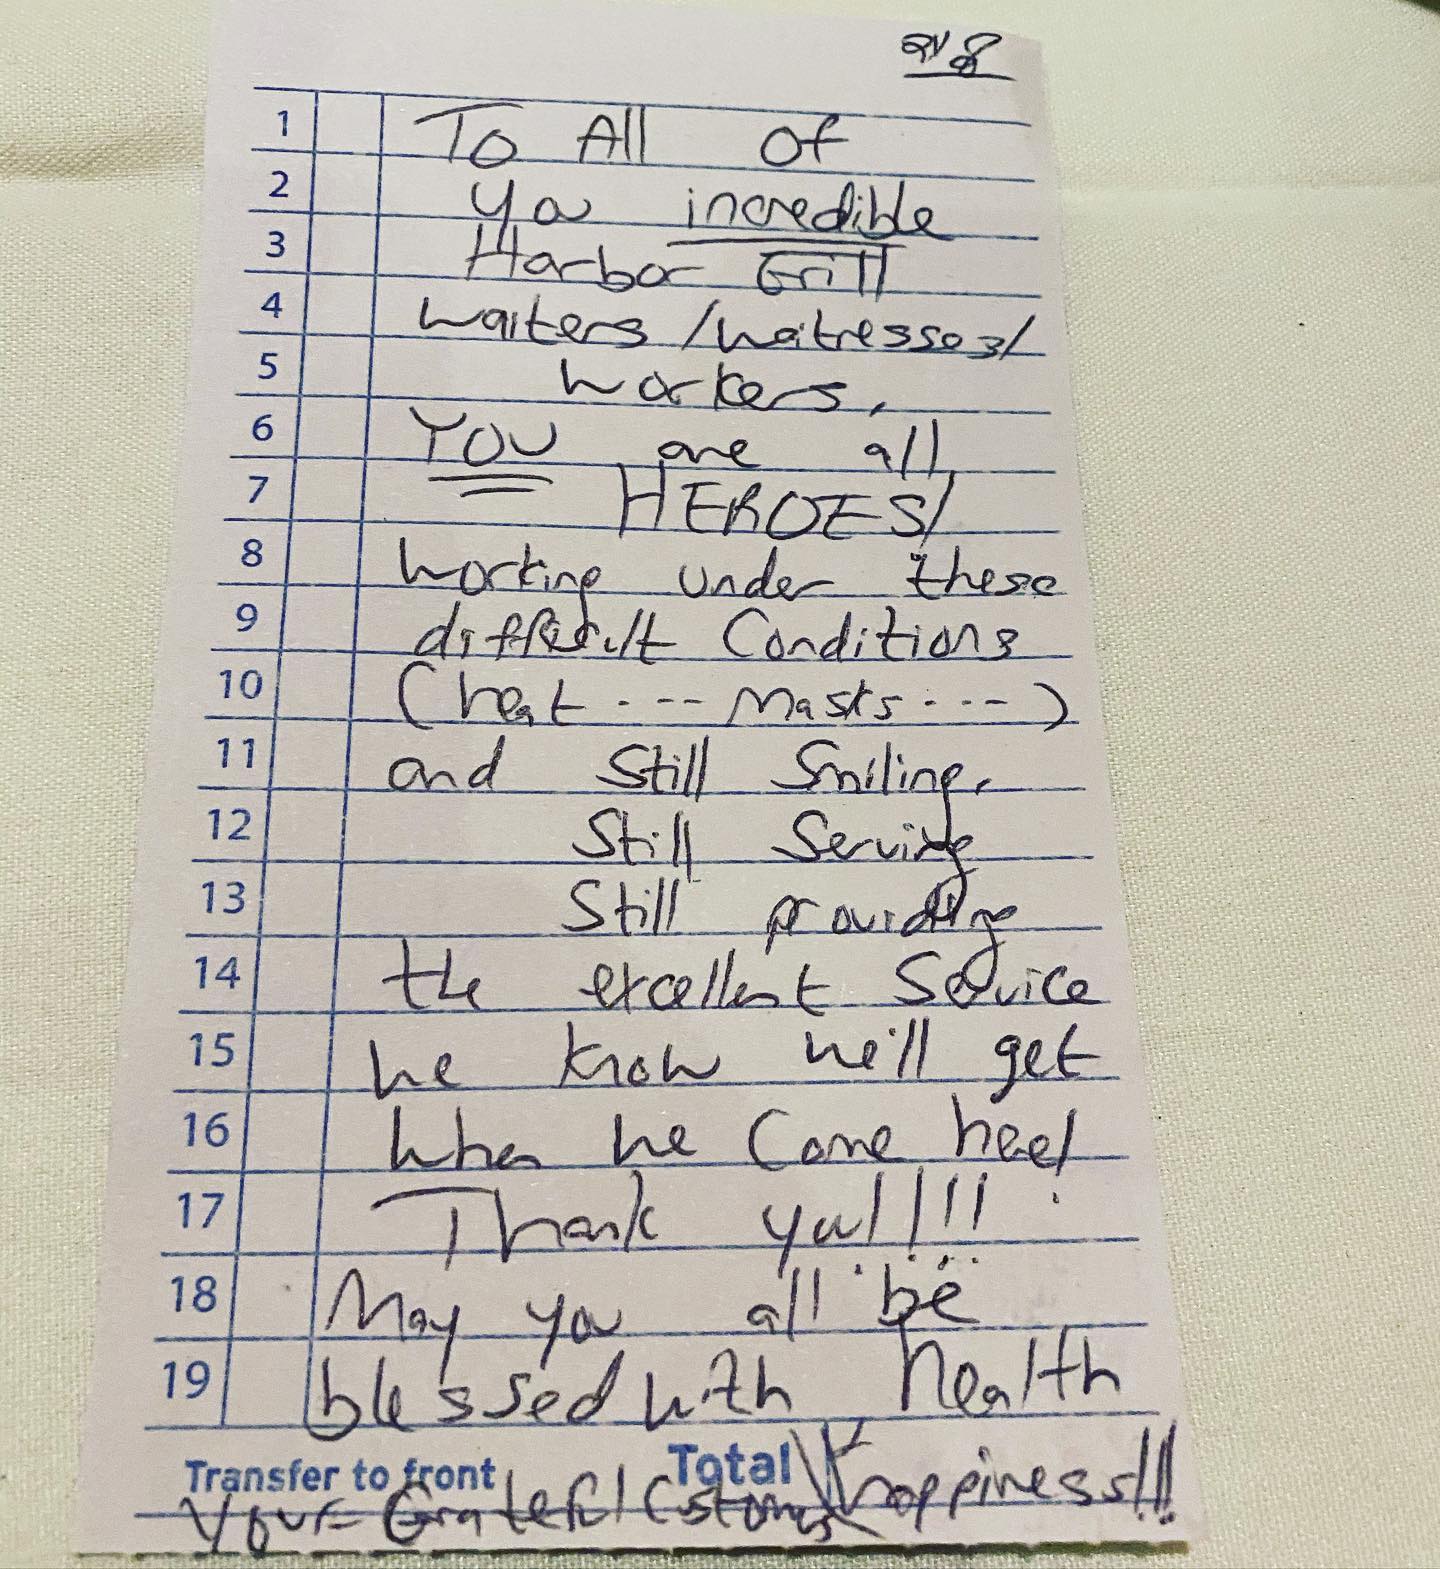 1 To All of
2 you incredible
3 Harbor Grill
4 waiters/waitresses/
5 workers,
6 YOU are all
7 HEROES!
8 working under these
9 difficult Conditions
10 (heat .--- Masks .---)
11 and Still Smiling,
12 Still Serving
13 Still providing
14 the excellent Service
15 we know we'll get
16 when we Come here!
17 Thank you!!!!!
18 May you all be
19 blessed with health
Transfer to front Total happiness!!!
Your Grateful Customers